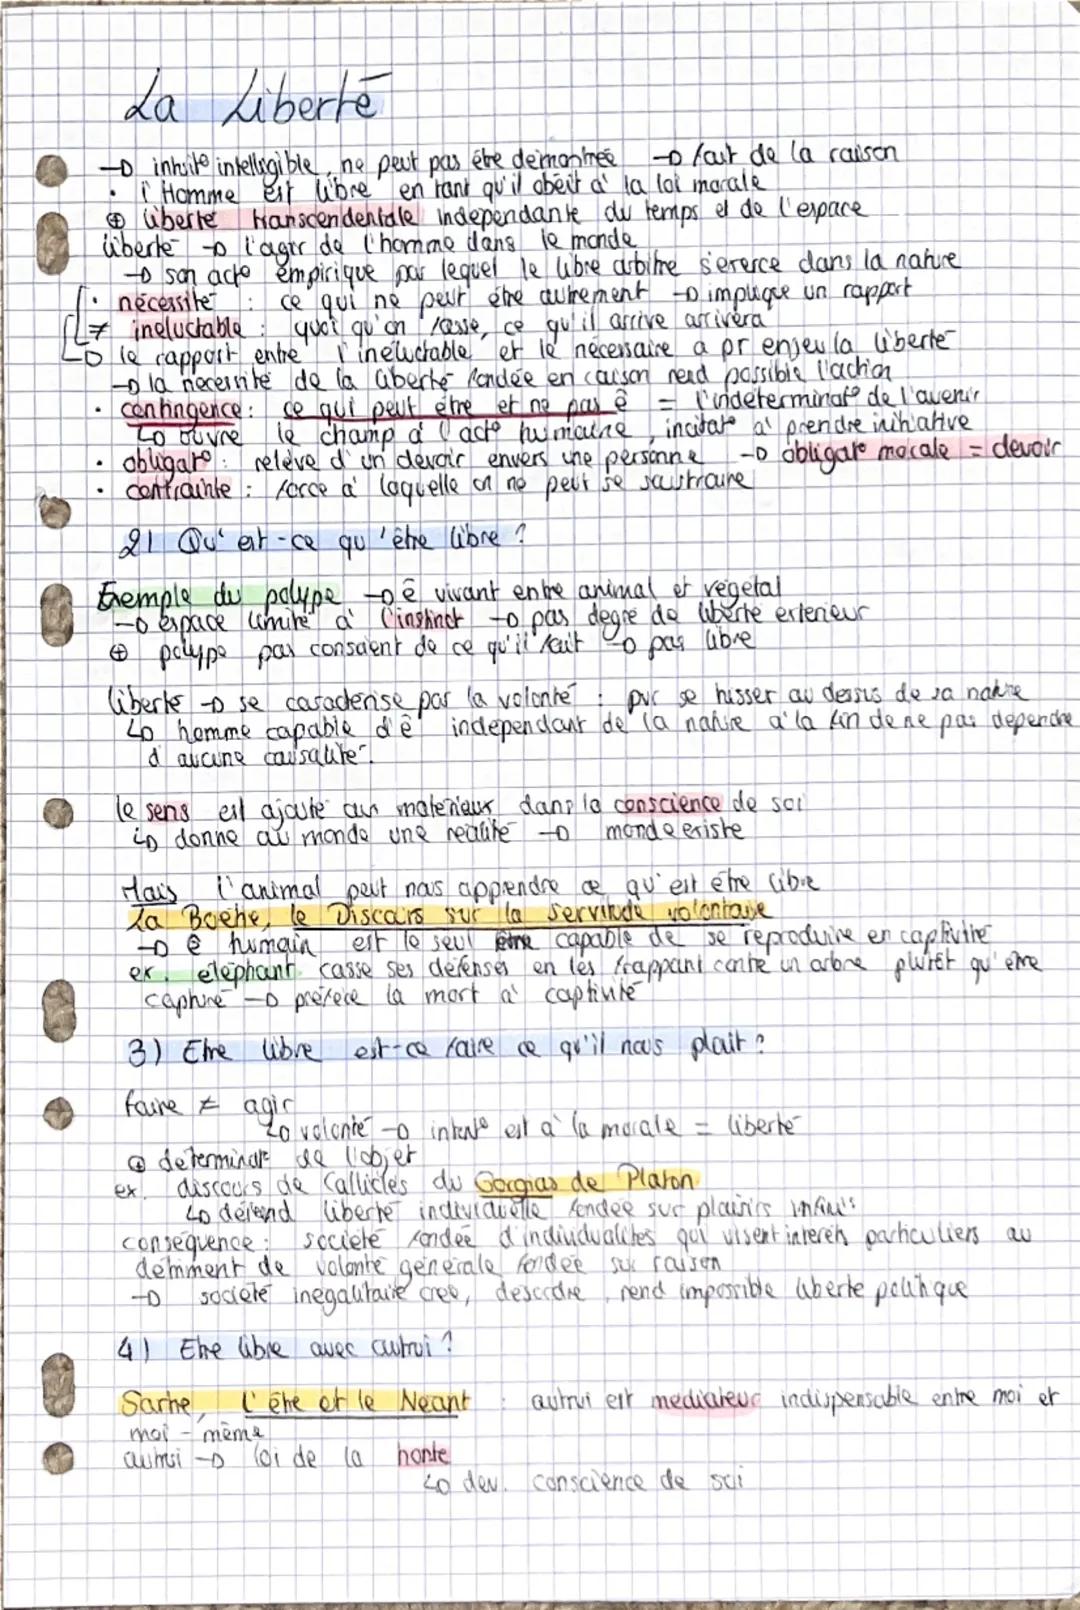 La Liberté
→ intuit° intelligible, ne peut pas être démontrée → fait de la raison
• l'Homme est libre en tant qu'il obéit à la loi morale
⊕ liberté transcendentale indépendante du temps et de l'espace
liberté → l'agir de l'homme dans le monde
→ son acte empirique par lequel le libre arbitre s'exerce dans la nature
• nécessité : ce qui ne peut être autrement → implique un rapport
≠ inéluctable : quoi qu'on fasse, ce qu'il arrive arrivera
↳ le rapport entre l'inéluctable et le nécessaire a pr enjeu la liberté
→ la nécessité de la liberté fondée en raison rend possible l'action
• contingence : ce qui peut être et ne pas ê = l'indéterminat° de l'avenir
↳ ouvre le champ à l'act° humaine, incitat° à prendre initiative
• obligat° : relève d'un devoir envers une personne → obligat° morale = devoir
• contrainte : force à laquelle on ne peut se soustraire
2) Qu'est-ce qu'être libre ?
Exemple du polype → ê vivant entre animal et végétal
→ espace limité à l'instinct → pas degré de liberté extérieur
⊕ polype pas conscient de ce qu'il fait → pas libre
liberté → se caractérise par la volonté : pvr se hisser au dessus de sa nature
↳ homme capable d'ê indépendant de la nature à la fin de ne pas dépendre
d'aucune causalité.
le sens est ajouté aux matériaux dans la conscience de soi
↳ donne au monde une réalité → monde existe
Mais l'animal peut nous apprendre ce qu'est être libre
La Boétie, le Discours sur la servitude volontaire
→ ê humain est le seul être capable de se reproduire en captivité
ex. éléphant casse ses défenses en les frappant contre un arbre plutôt qu'être
capturé → préfère la mort à captivité
3) Etre libre est-ce faire ce qu'il nous plait ?
faire ≠ agir
↳ volonté → intent° est à la morale = liberté
⊕ déterminat° de l'objet
ex. discours de Calliclès du Gorgias de Platon
↳ défend liberté individuelle fondée sur plaisirs infinis
conséquence : société fondée d'individualités qui visent intérêts particuliers au
détriment de volonté générale fondée sur raison
→ société inégalitaire créé, désordre, rend impossible liberté politique
4) Etre libre avec autrui ?
Sartre, L'être et le Néant : autrui est médiateur indispensable entre moi et
moi-même
autrui → loi de la honte
↳ dev. conscience de soi